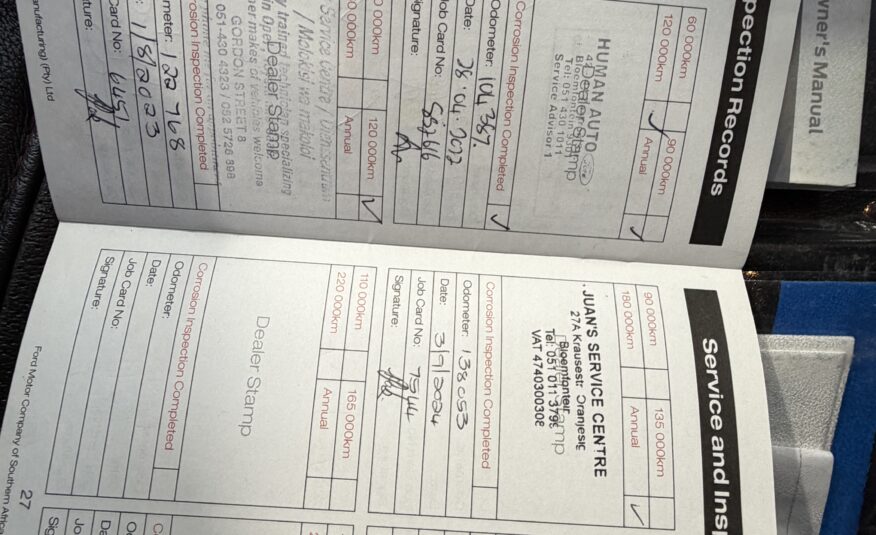 wner's Manual
pection Records
60 000km
90 000km
120 000km
Annual
HUMAN AUTO
Dealer Stamp
Tel: 051 430 1011
Service Advisor 1
Corrosion Inspection Completed
Odometer: 104 387.
Date: 28.04.2022
Job Card No:
Signature:
0 000km
120 000km
0 000km
Annual
Dealer Stamp
GORDON STREET 8
051 430 4323 / 052 5726 898
rosion Inspection Completed
meter: 122 768
: 1/8/2023
Card No: 6454
ature:
anufacturing) (Pty) Ltd
Service and Ins
90 000km
135 000km
180 000km
Annual
JUAN'S SERVICE CENTRE
27A Krausestr Oranjesig
Bloemfontein
Tel: 051 011 3796
VAT 4740300308
Corrosion Inspection Completed
Odometer: 138053
Date: 3/9/2024
Job Card No: 7544
Signature:
110 000km
165 000km
220 000km
Annual
Dealer Stamp
Corrosion Inspection Completed
Odometer:
Date:
Job Card No:
Signature:
Ford Motor Company of Southern Africa
27
2
C
O
Da
Jo
Sig